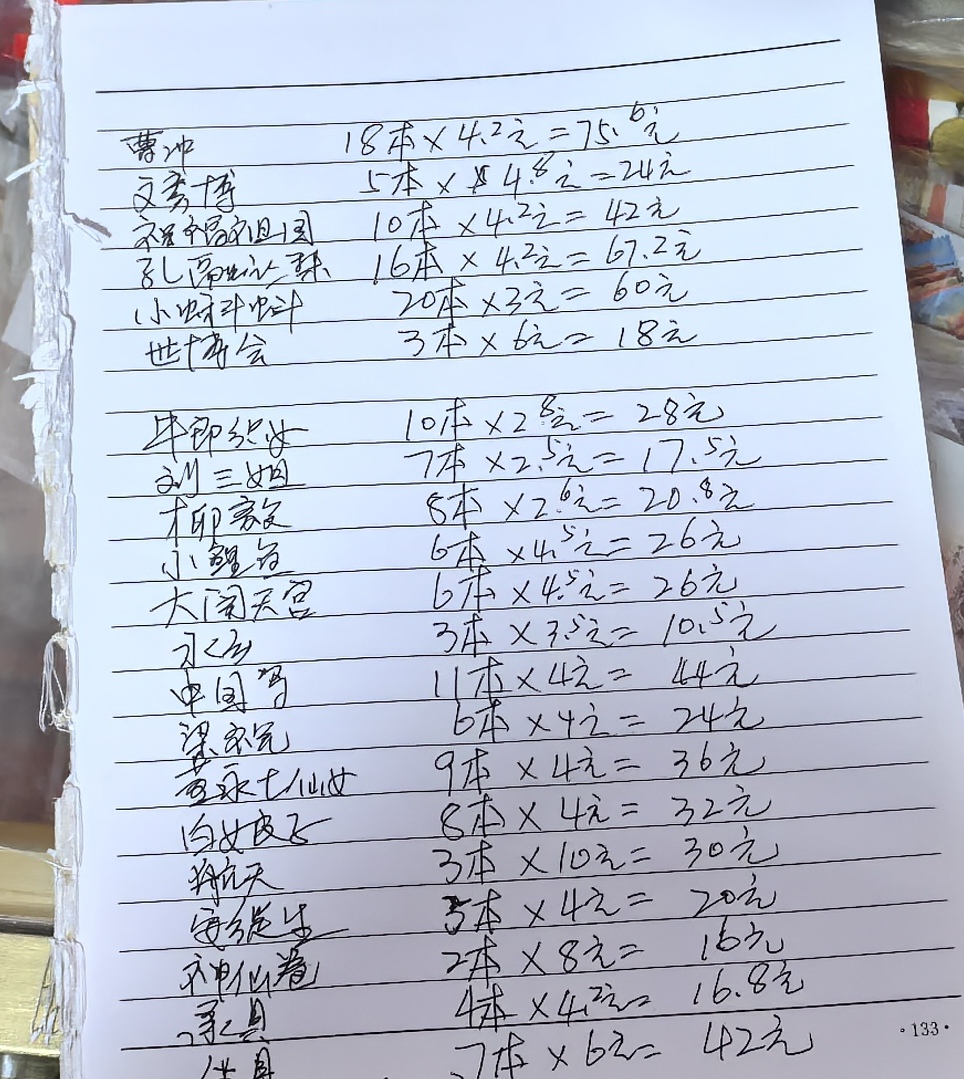 曹冲 18本×4.2元=75.6元
文彦博 5本×4.8元=24元
祝福祖国 10本×4.2元=42元
孔融让梨 16本×4.2元=67.2元
小蝌蚪 20本×3元=60元
世博会 3本×6元=18元
牛郎织女 10本×2.8元=28元
刘三姐 7本×2.5元=17.5元
柳毅 8本×2.6元=20.8元
小鲤鱼 6本×4.5元=26元
大闹天宫 6本×4.5元=26元
3本×3.5元=10.5元
中国 11本×4元=44元
梁祝 6本×4元=24元
董永七仙女 9本×4元=36元
白女皮子 8本×4元=32元
航天 3本×10元=30元
安徒生 5本×4元=20元
神仙卷 2本×8元=16元
4本×4.2元=16.8元
7本×6元=42元
·133·